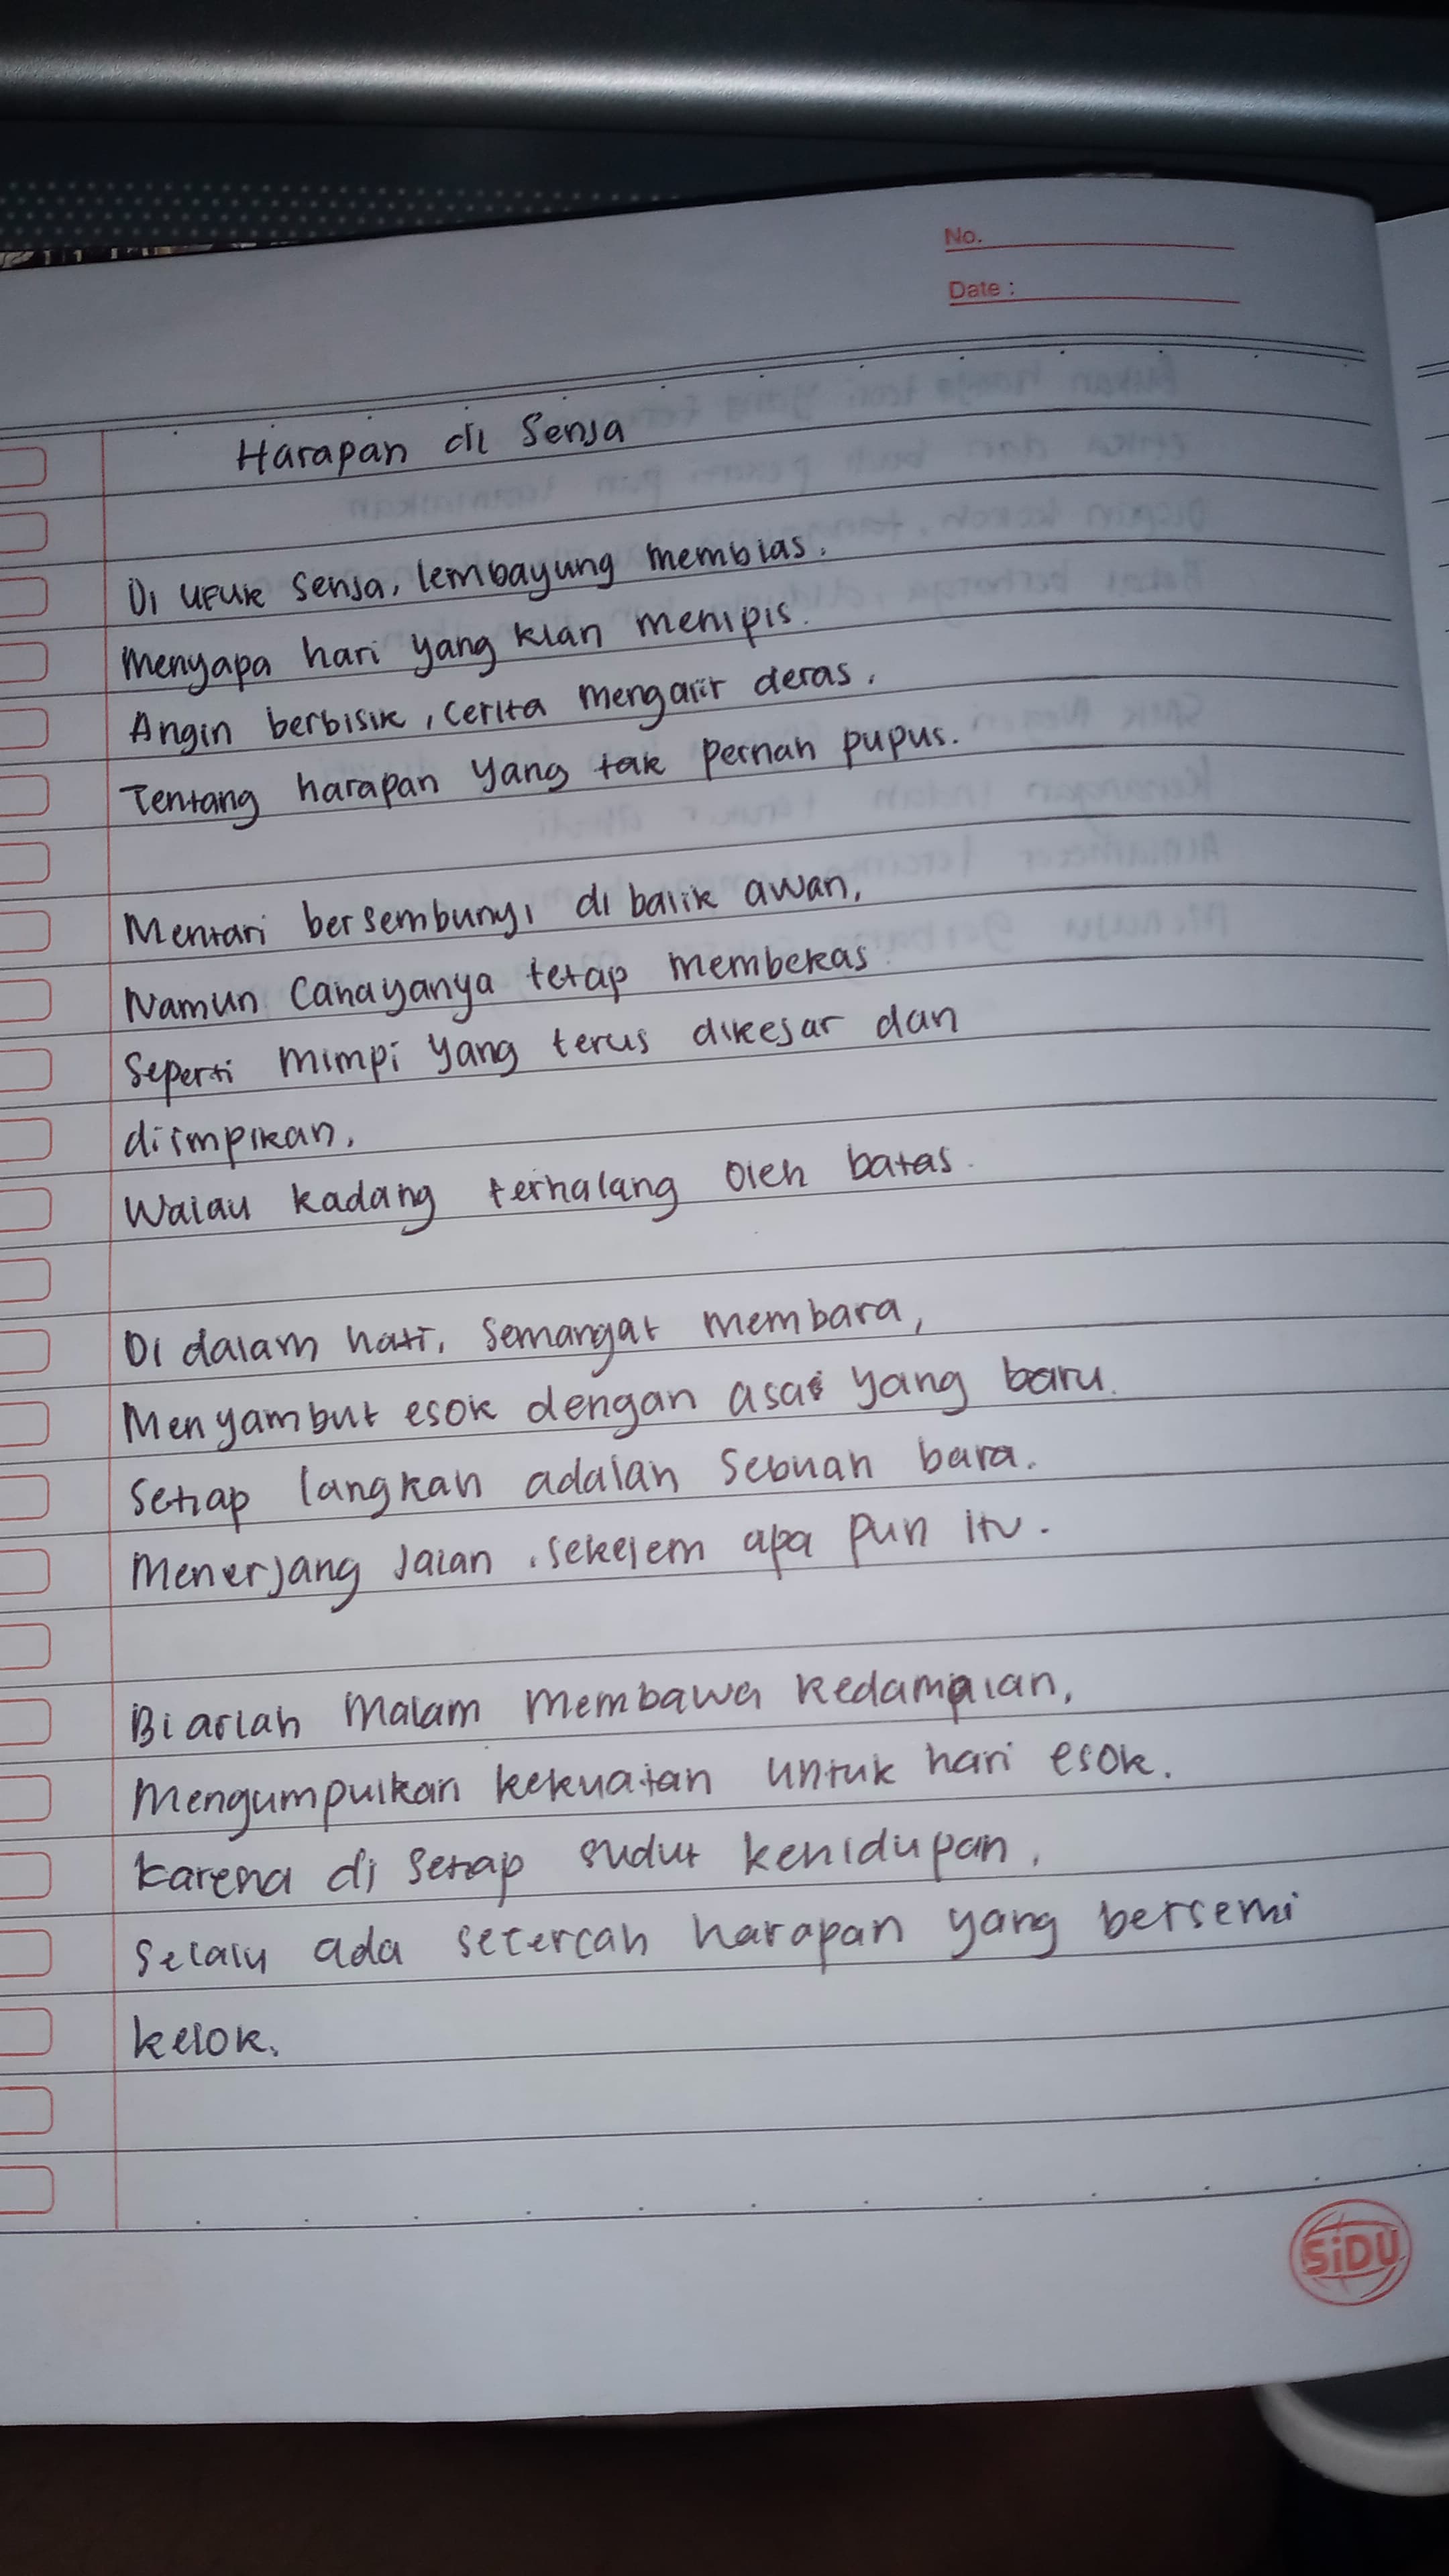 No.
Date :
Harapan di Senja
Di ufuk senja, lembayung membias,
Menyapa hari yang kian menipis.
Angin berbisik, cerita mengalir deras,
Tentang harapan yang tak pernah pupus.
Mentari bersembunyi di balik awan,
Namun cahayanya tetap membekas.
Seperti mimpi yang terus dikejar dan
diimpikan,
Walau kadang terhalang oleh batas.
Di dalam hati, semangat membara,
Menyambut esok dengan asa yang baru.
Setiap langkah adalah sebuah bara.
Menerjang jalan, sekejem apa pun itu.
Biarlah malam membawa kedamaian,
Mengumpulkan kekuatan untuk hari esok.
Karena di setiap sudut kehidupan,
Selalu ada setercah harapan yang bersemi
kelok.
SiDU